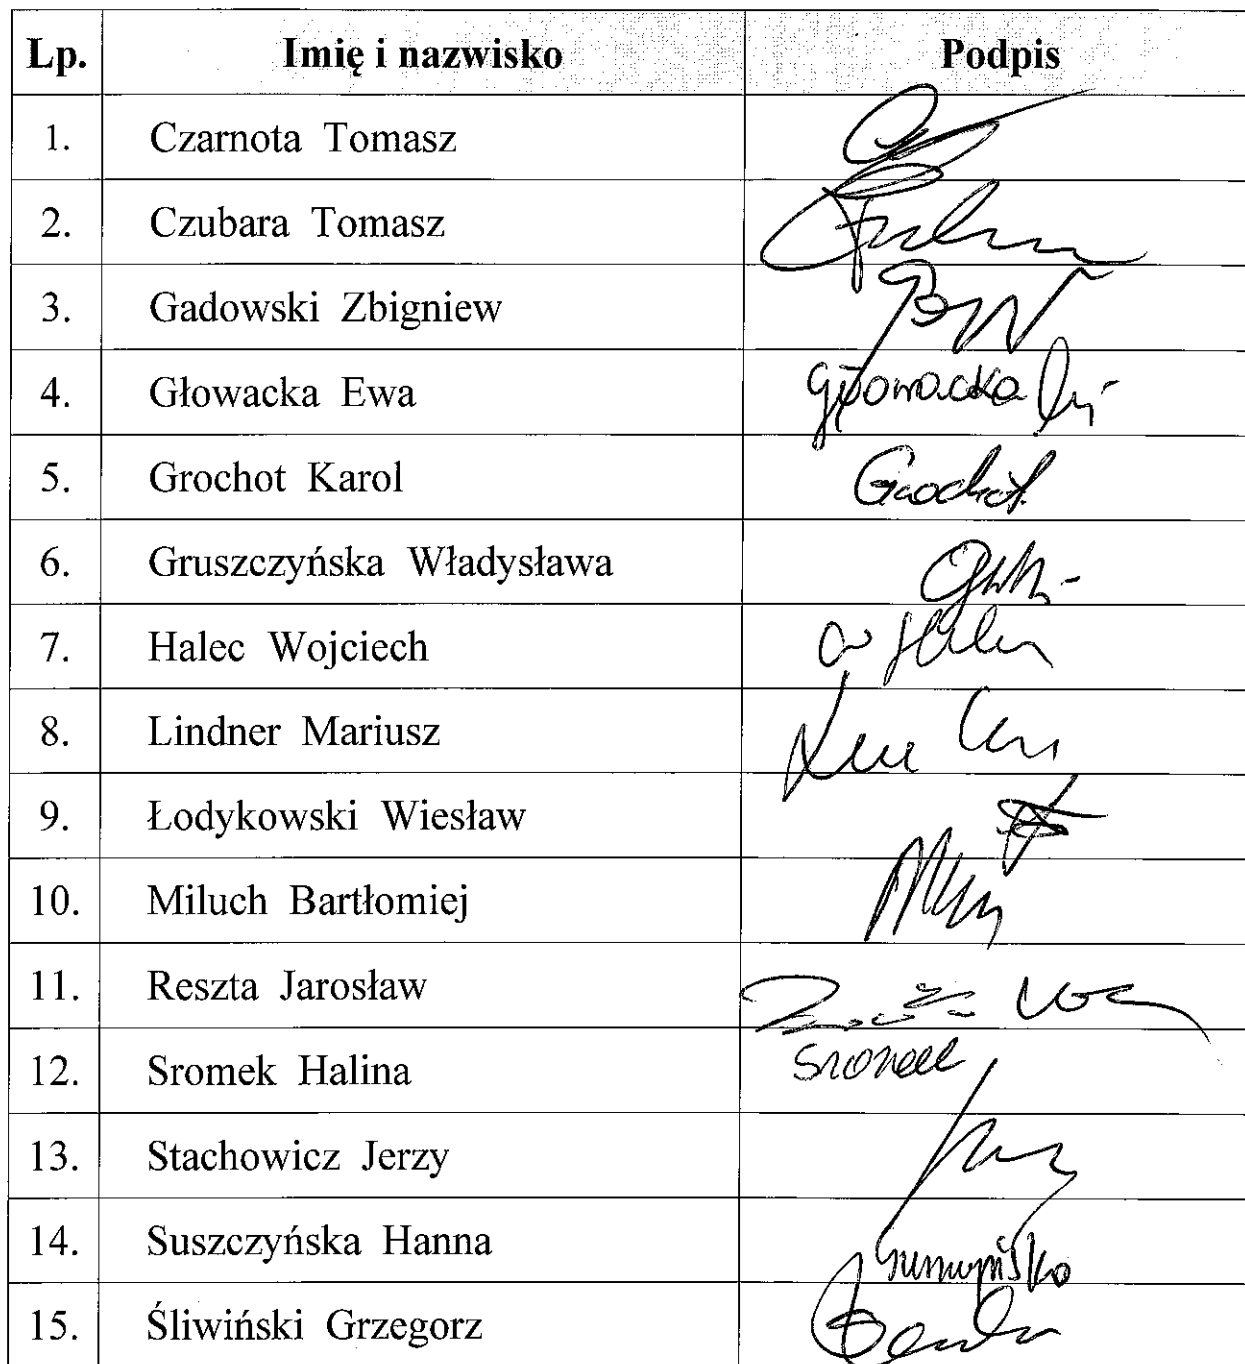 Lp. Imię i nazwisko Podpis
1. Czarnota Tomasz
2. Czubara Tomasz
3. Gadowski Zbigniew
4. Głowacka Ewa Głowacka
5. Grochot Karol Grochot
6. Gruszczyńska Władysława
7. Halec Wojciech
8. Lindner Mariusz
9. Łodykowski Wiesław
10. Miluch Bartłomiej
11. Reszta Jarosław
12. Sromek Halina Sromek
13. Stachowicz Jerzy
14. Suszczyńska Hanna
15. Śliwiński Grzegorz